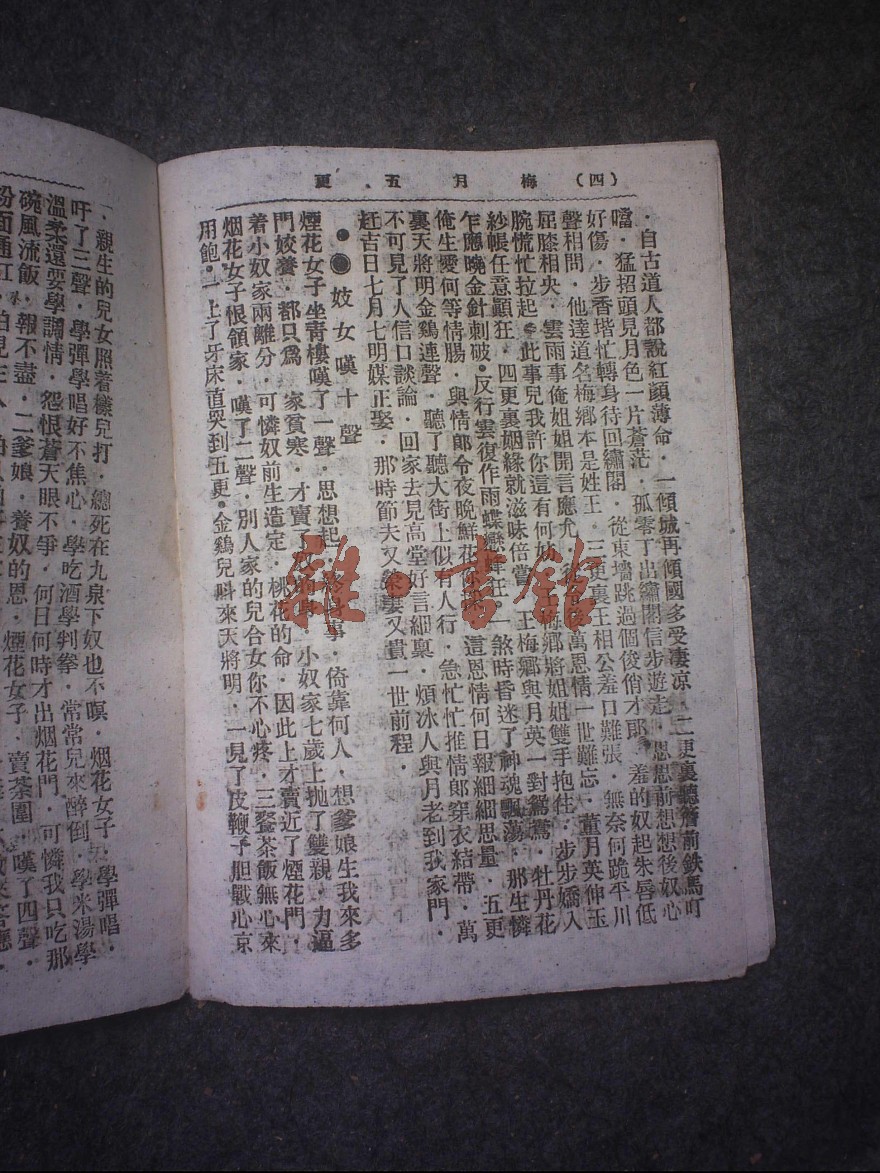 (四) 梅月五更
．自古道人都說紅顏薄命．一傾城再傾國多受凄凉．二更裏聽簷前鉄馬叮
噹．猛招頭見月色一片蒼茫．孤零丁出繡閣信步遊走．思思前想想後奴心
好傷．步香堦忙轉身待回繡閣．從東墻跳過個俊俏才郎．羞的奴起朱唇低
聲相問．他達道名梅鄉本是姓王．三更裏王相公羞口難張．無奈何跪平川
屈膝相央．雲雨事俺姐姐開言應允．後萬恩情一世難忘．董月英伸玉
腕慌忙拉起．此事兒我許你這有何妨．梅鄉將姐姐雙手抱住．步步嬌入
紗帳任意顚狂．四更裏姻緣就滋味倍嘗．王梅鄉與月英一對鴛鴦．牡丹花
乍應曉金針刺破●反行雲復作雨蝶戀蜂狂．一煞時昏迷了神魂飄蕩．那生憐
俺生愛何等情腸．與情郎今夜晚鮮花你．這恩情何日報細細思量．五更
裏天將明金鷄連聲．聽了聽大街上似一人行．急忙忙推情郎穿衣結帶．萬
不可見了人信口談論．回家去見高堂好言細稟．煩冰人與月老到我家門．
赶吉日七月七明媒正娶．那時節夫又榮妻又貴一世前程．
●●妓女嘆十聲
煙花女子坐靑樓嘆了一聲．思想起．終身事．倚靠何人．想爹娘生我來多
門姣養．都只爲．家貧寒．才賣了奴的身．小奴家七歲上抛了雙親．力逼
着小奴家兩離分．可憐奴前生造定．桃花的命．因此上才賣近了煙花門．
烟花女子恨領家．嘆了二聲．別人家的兒合女你不心疼．三餐茶飯無心來
用飽．一上了牙床直哭到五更●金鷄兒呌來天將明．一見了皮鞭子胆戰心京
．親生的兒女照着樣兒打．總死在九泉下奴也不瞑．烟花女子．學彈唱．
吁了三聲．學彈學唱好不焦心．學吃酒學判拳．常常兒來醉倒．學米湯學
溫柔還要學調情．怨恨蒼天眼不爭．何日何時才出烟花門．可憐我只吃那
碗風流飯．報不盡．二爹娘．養奴的恩．煙花女子．賣茶圍．嘆了四聲．
粉面通紅．怕見生人